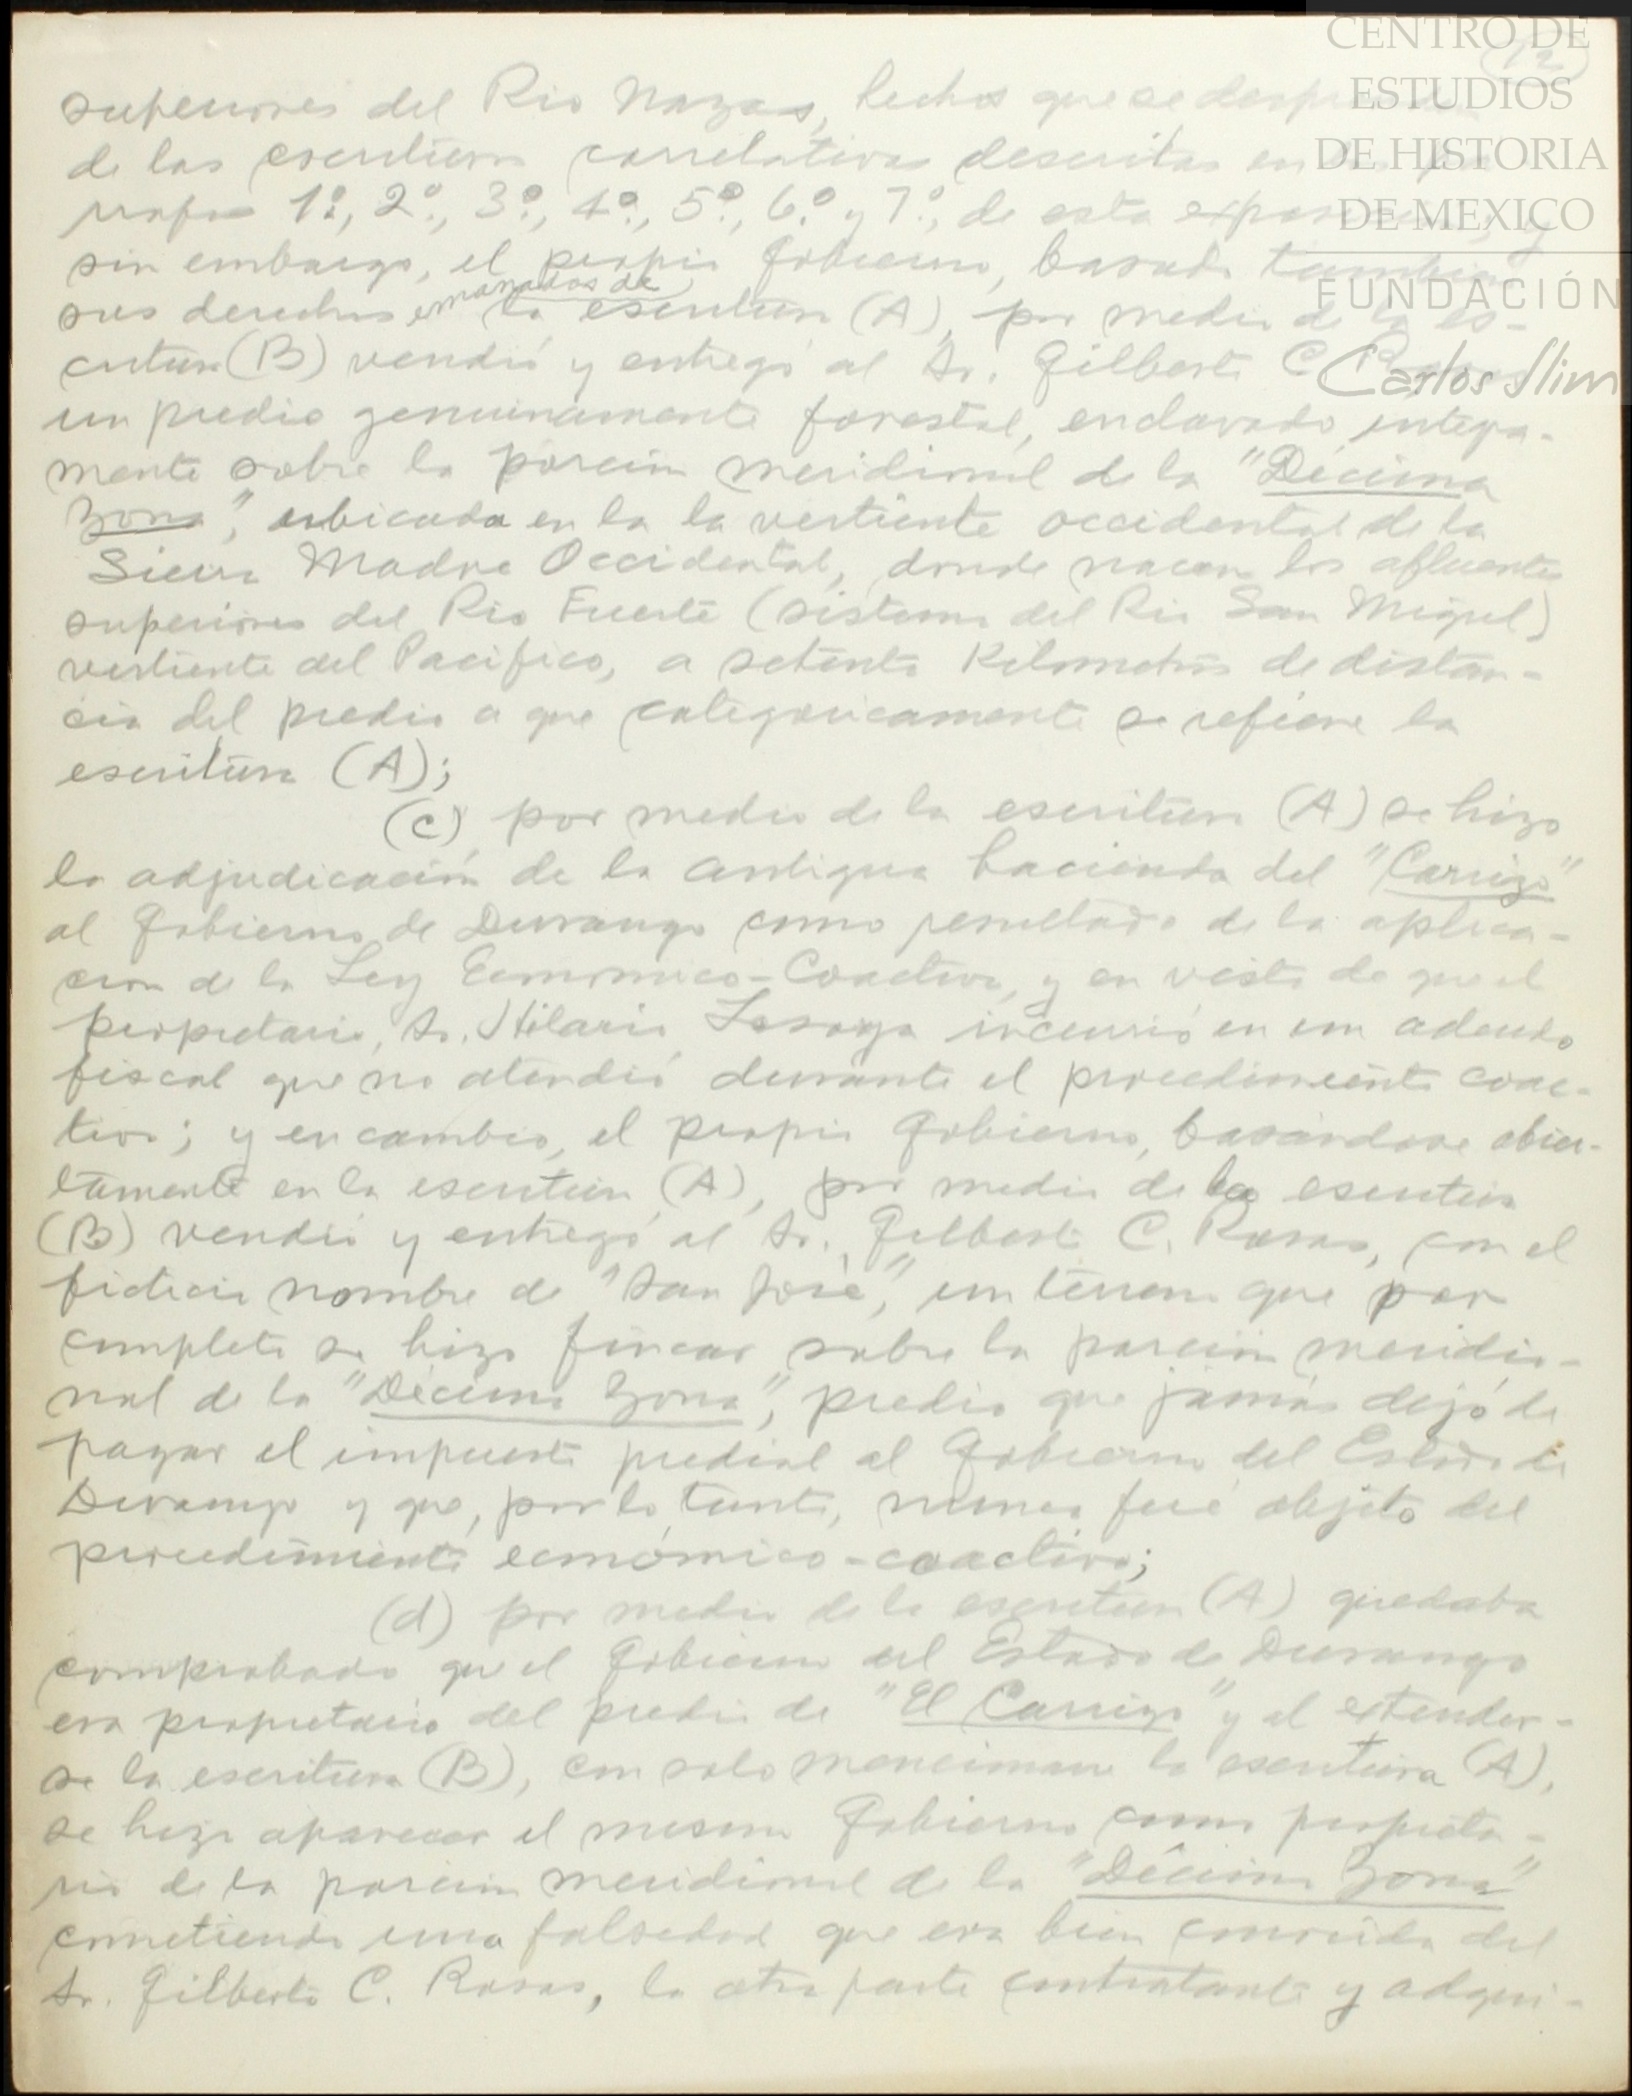 CENTRO DE
ESTUDIOS
DE HISTORIA
DE MEXICO
FUNDACIÓN
Carlos Slim
12
superiores del Rio Nazas, hechos que se
de las escrituras correlativas descritas en
rrafos 1º., 2º., 3º., 4º., 5º., 6º. y 7º., de esta y
sin embargo, el propio Gobierno, basado tambien
sus derechos emanados de la escritura (A), por medio de la es-
critura (B) vendió y entregó al Sr. Gilberto C.
un predio genuinamente forestal, enclavado integra-
mente sobre la porción meridional de la "Décima
Zona", ubicada en la la vertiente occidental de la
Sierra Madre Occidental, donde nacen los afluentes
superiores del Rio Fuerte (sistema del Rio San Miguel)
vertiente del Pacifico, a setenta Kilometros de distan-
cia del predio a que categoricamente se refiere la
escritura (A);
(c) por medio de la escritura (A) se hizo
la adjudicación de la antigua hacienda del "Carrizo"
al Gobierno de Durango como resultado de la aplica-
cion de la Ley Economico-Coactiva, y en vista de que el
propietario, Sr. Hilario Lozoya incurrió en un adeudo
fiscal que no atendió durante el procedimiento coac-
tivo; y en cambio, el propio Gobierno, basándose abier-
tamente en la escritura (A), por medio de la escritura
(B) vendió y entregó al Sr. Gilberto C. Rosas, con el
ficticio nombre de "San José", un terreno que por
completo se hizo fincar sobre la porción meridio-
nal de la "Décima Zona", predio que jamás dejó de
pagar el impuesto predial al Gobierno del Estado de
Durango y que, por lo tanto, nunca fué objeto del
procedimiento económico-coactivo;
(d) por medio de la escritura (A) quedaba
comprobado que el Gobierno del Estado de Durango
era propietario del predio de "El Carrizo" y al extender-
se la escritura (B), con solo mencionar la escritura (A),
se hizo aparecer el mismo Gobierno como propieta-
rio de la porcion meridional de la "Décima Zona"
cometiendo una falsedad que era bien conocida del
Sr. Gilberto C. Rosas, la otra parte contratante y adqui-